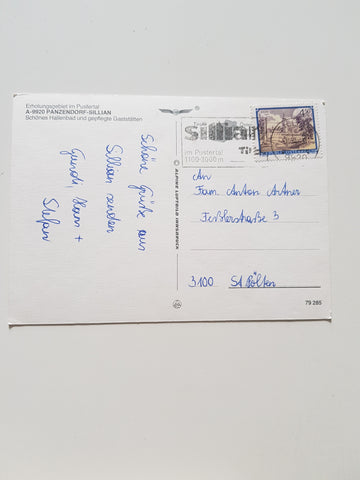 Erholungsgebiet im Pustertal
A-9920 PANZENDORF-SILLIAN
Schönes Hallenbad und gepflegte Gaststätten
Schöne Grüße aus
Sillian senden
Gundi, Hans +
Stefan
ALPINE LUFTBILD INNSBRUCK
sillian
im Pustertal
1100-3000 m
An
Fam. Anton Artner
3
3100 St. Pölten
79 285